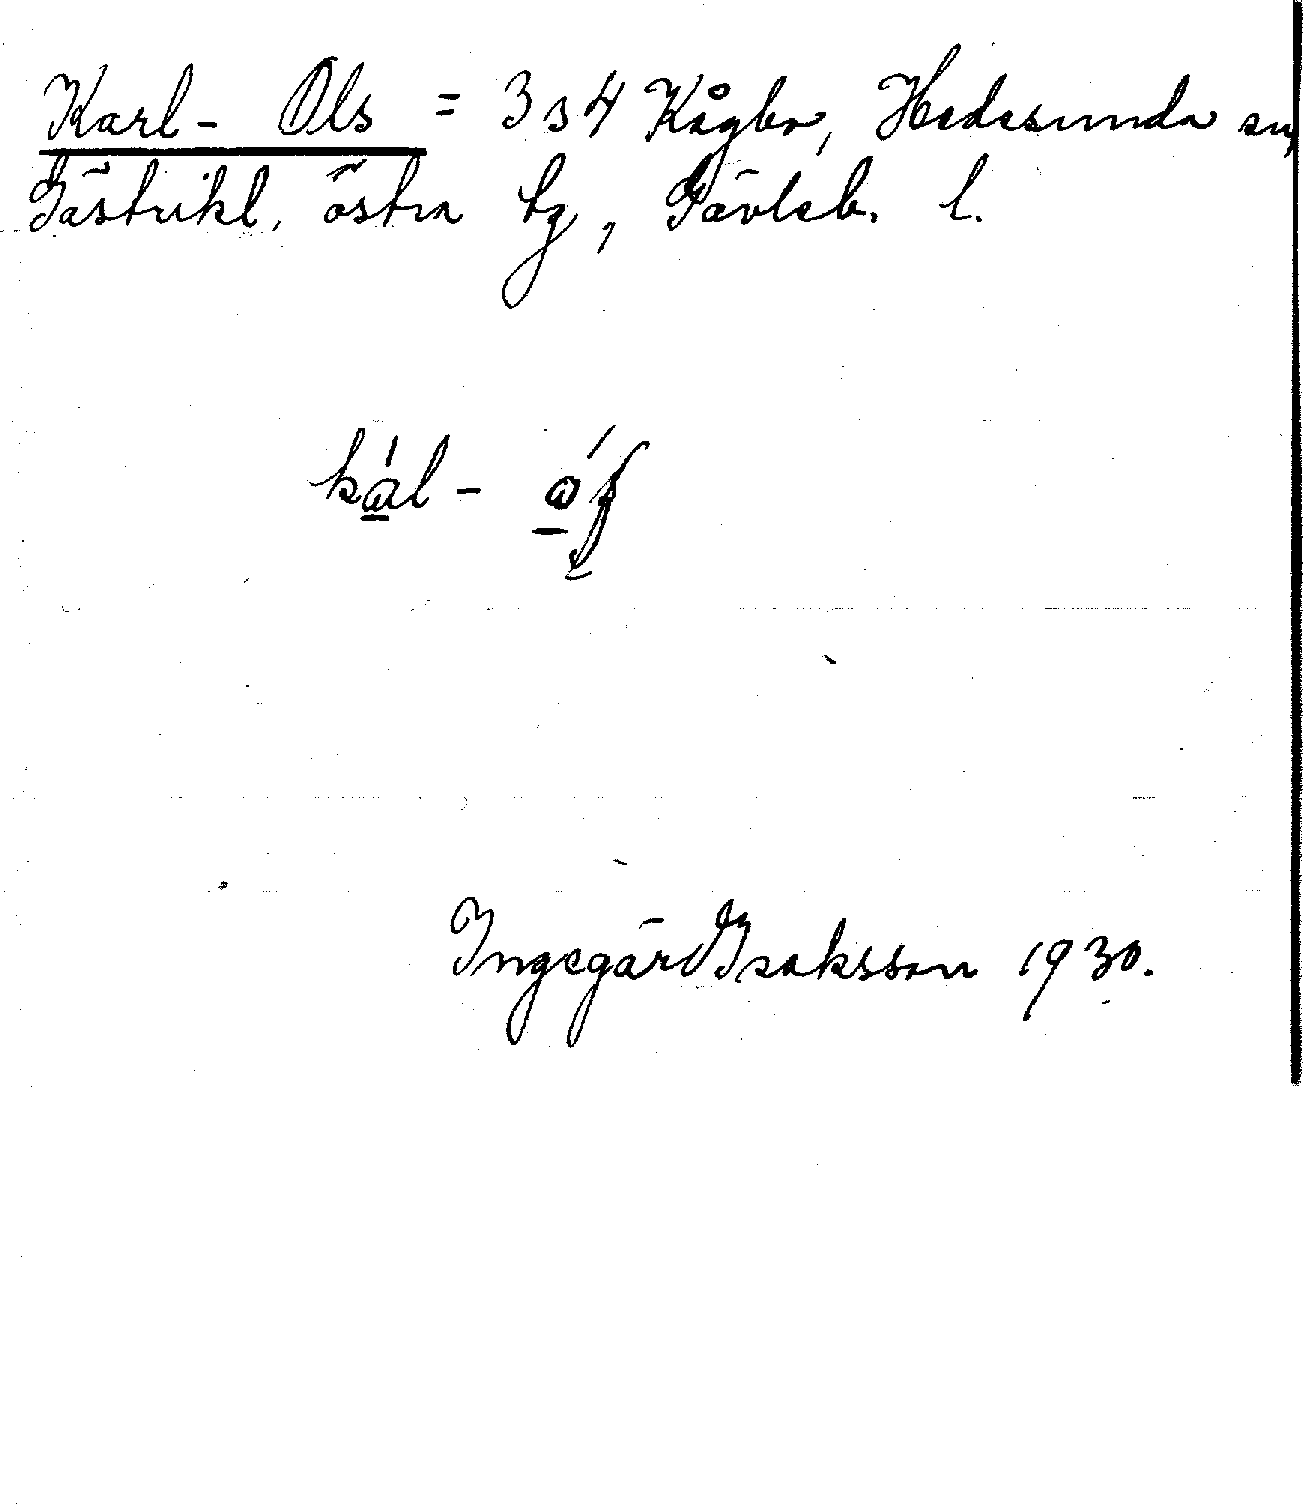 Karl- Ols = 3 s 4 Kågbo, Hedesunda sn,
Gästrikl. östra tg, Gävleb. l.
kál-
Ingegärd Isaksson 1930.